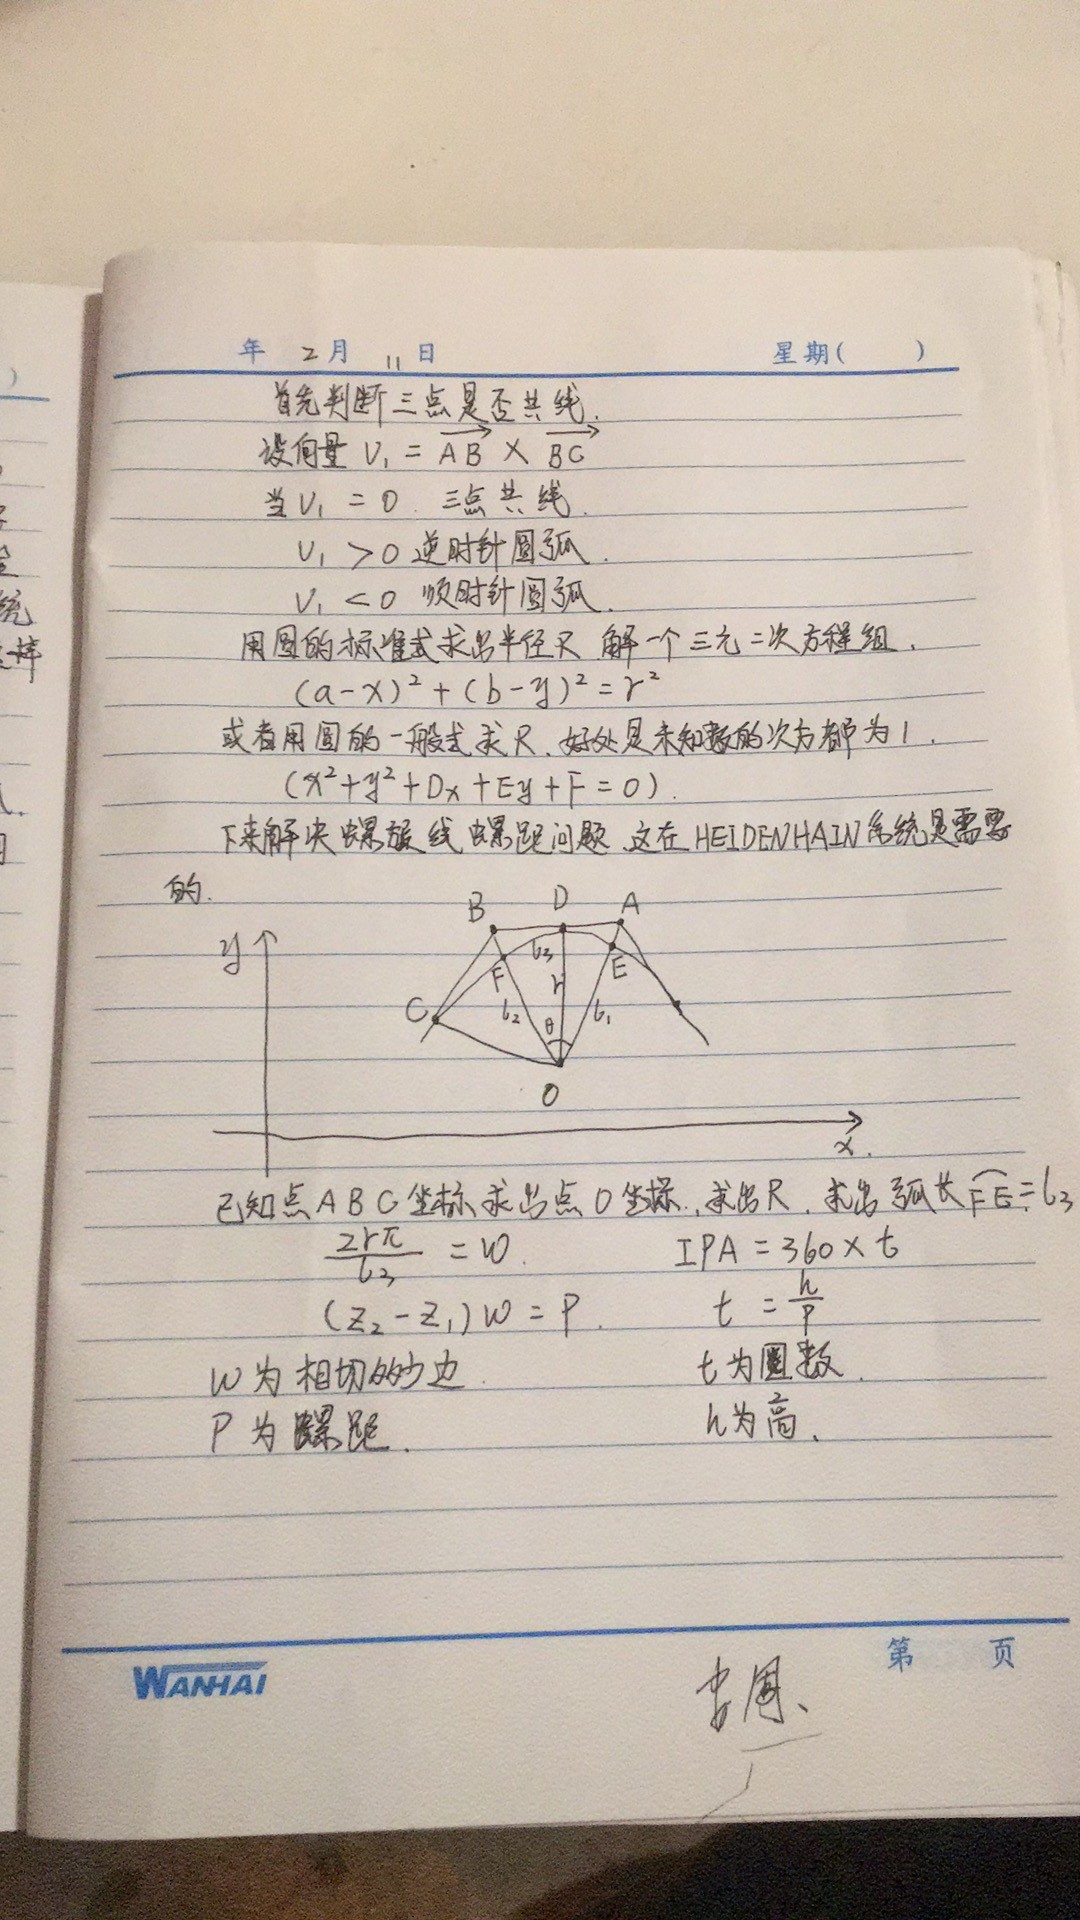 年 2月 11日 星期( )
首先判断三点是否共线.
设向量 V₁ = AB × BC
当V₁ = 0. 三点共线.
V₁ > 0 逆时针圆弧.
V₁ < 0 顺时针圆弧.
用圆的标准式求出半径R 解一个三元二次方程组.
(a-x)² + (b-y)² = r²
或者用圆的一般式求R、好处是未知数的次方都为1.
(x²+y²+Dx+Ey+F=0).
下来解决螺旋线螺距问题、这在HEIDENHAIN系统是需要
的.
B D A
y
l₃
F E
r
C l₂ θ l₁
O
x.
已知点ABC坐标求出点O坐标.,求出R. 求出弧长FE=l₃
2rπ/l₃ = W. IPA = 360 × t
(Z₂-Z₁)W = P. t = h/P
W为相切的边. t为圈数.
P为螺距. h为高.
第 页
WANHAI